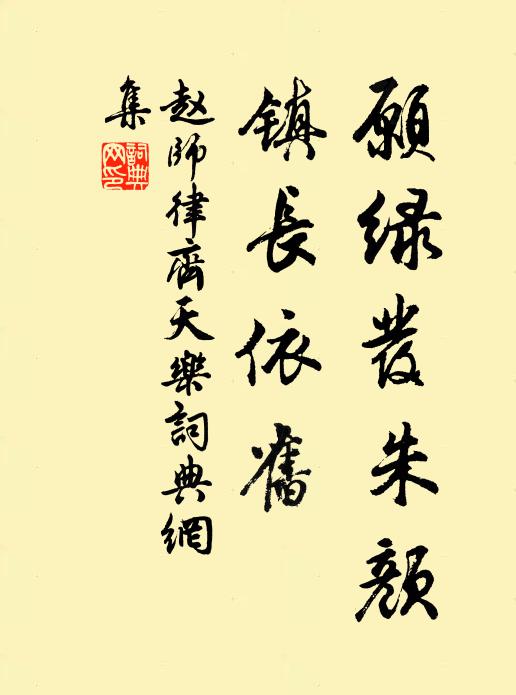 願綠發朱顏
鎮長依舊
赵師律齊天樂詞典網
集
詞典
网印